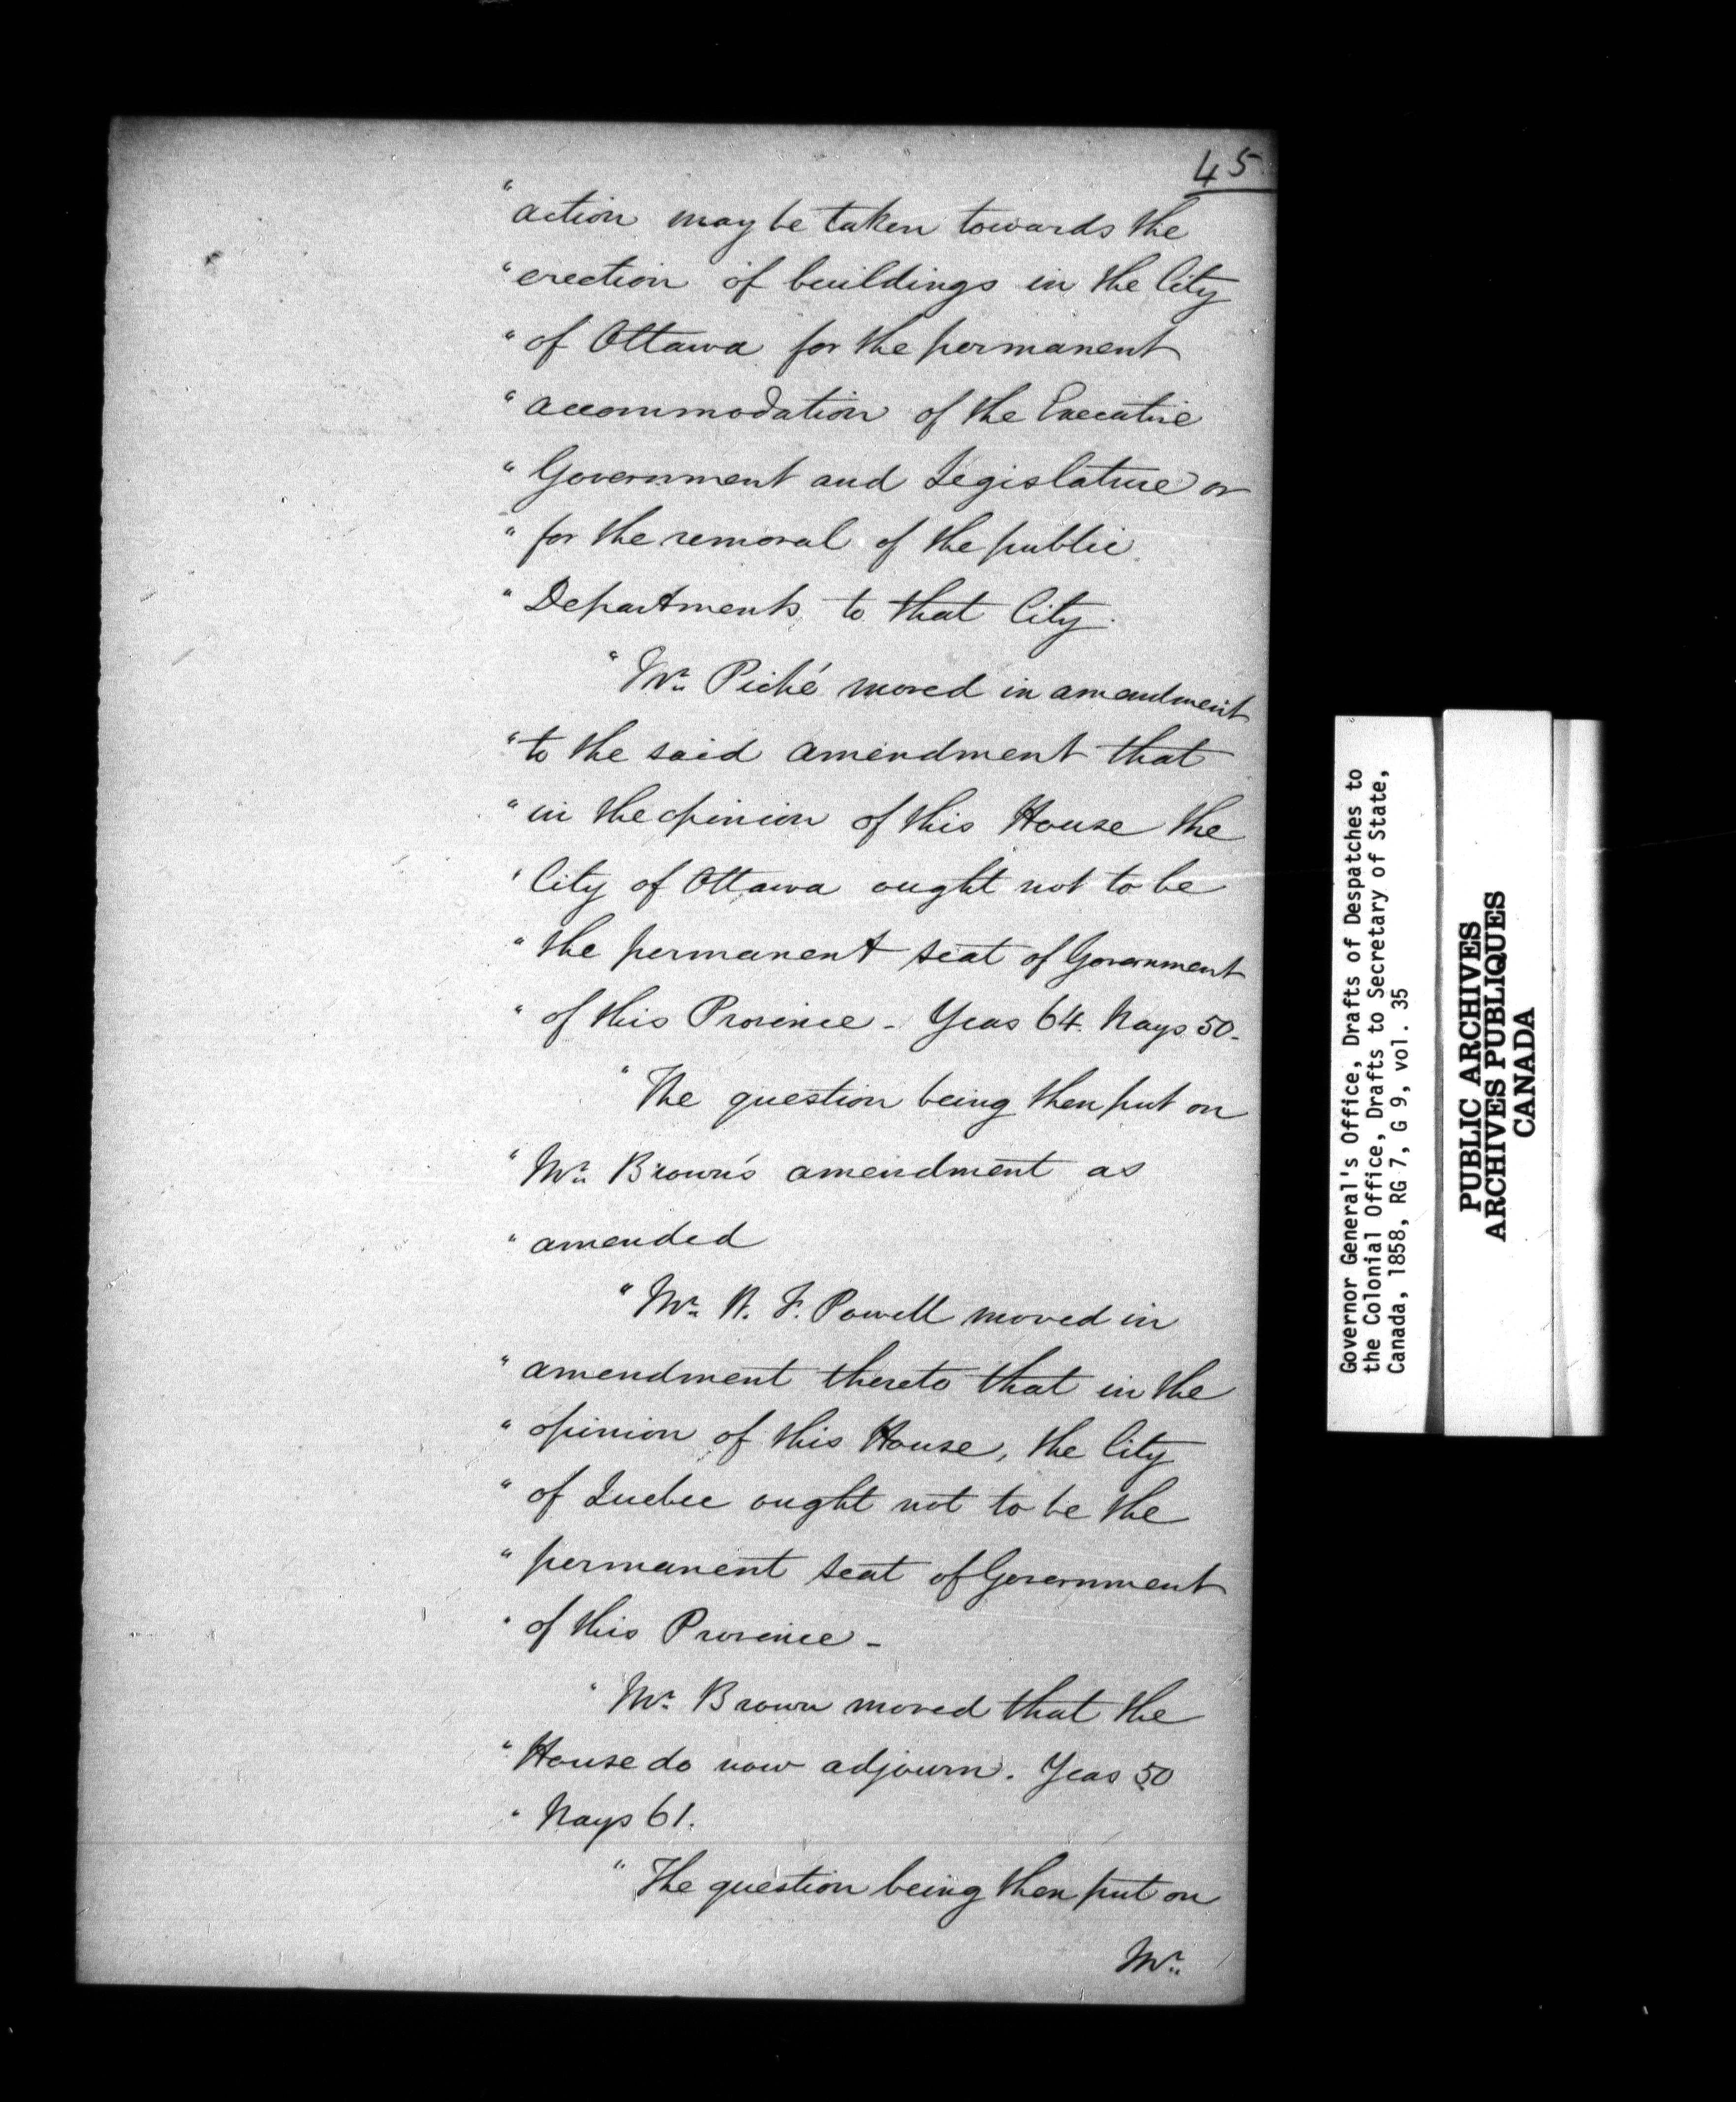 45
"action may be taken towards the
"erection of buildings in the City
"of Ottawa for the permanent
"accommodation of the Executive
"Government and Legislature or
"for the removal of the public
"Departments to that City.
"Mr. Piché moved in amendment
"to the said amendment that
"in the opinion of this House the
"City of Ottawa ought not to be
"the permanent seat of Government
"of this Province - Yeas 64. Nays 50-
"The question being then put on
"Mr. Brown's amendment as
"amended
"Mr. W. F. Powell moved in
"amendment thereto that in the
"opinion of this House, the City
"of Quebec ought not to be the
"permanent seat of Government
"of this Province -
"Mr. Brown moved that the
"House do now adjourn. Yeas 50
"Nays 61.
"The question being then put on
Mr.
Governor General's Office, Drafts of Despatches to
the Colonial Office, Drafts to Secretary of State,
Canada, 1858, RG 7, G 9, vol. 35
PUBLIC ARCHIVES
ARCHIVES PUBLIQUES
CANADA